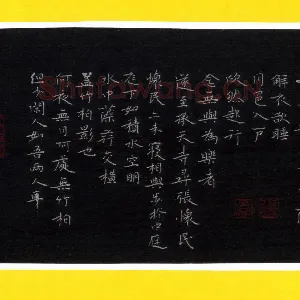 解衣欲睡
月色入户
欣然起行
念無與為樂者
遂至承天寺尋張懷民
懷民亦未寢相與步於中庭
庭下如積水空明
水中藻荇交橫
蓋竹柏影也
何夜無月何處無竹柏
但少閑人如吾兩人耳
Shufawang.CN